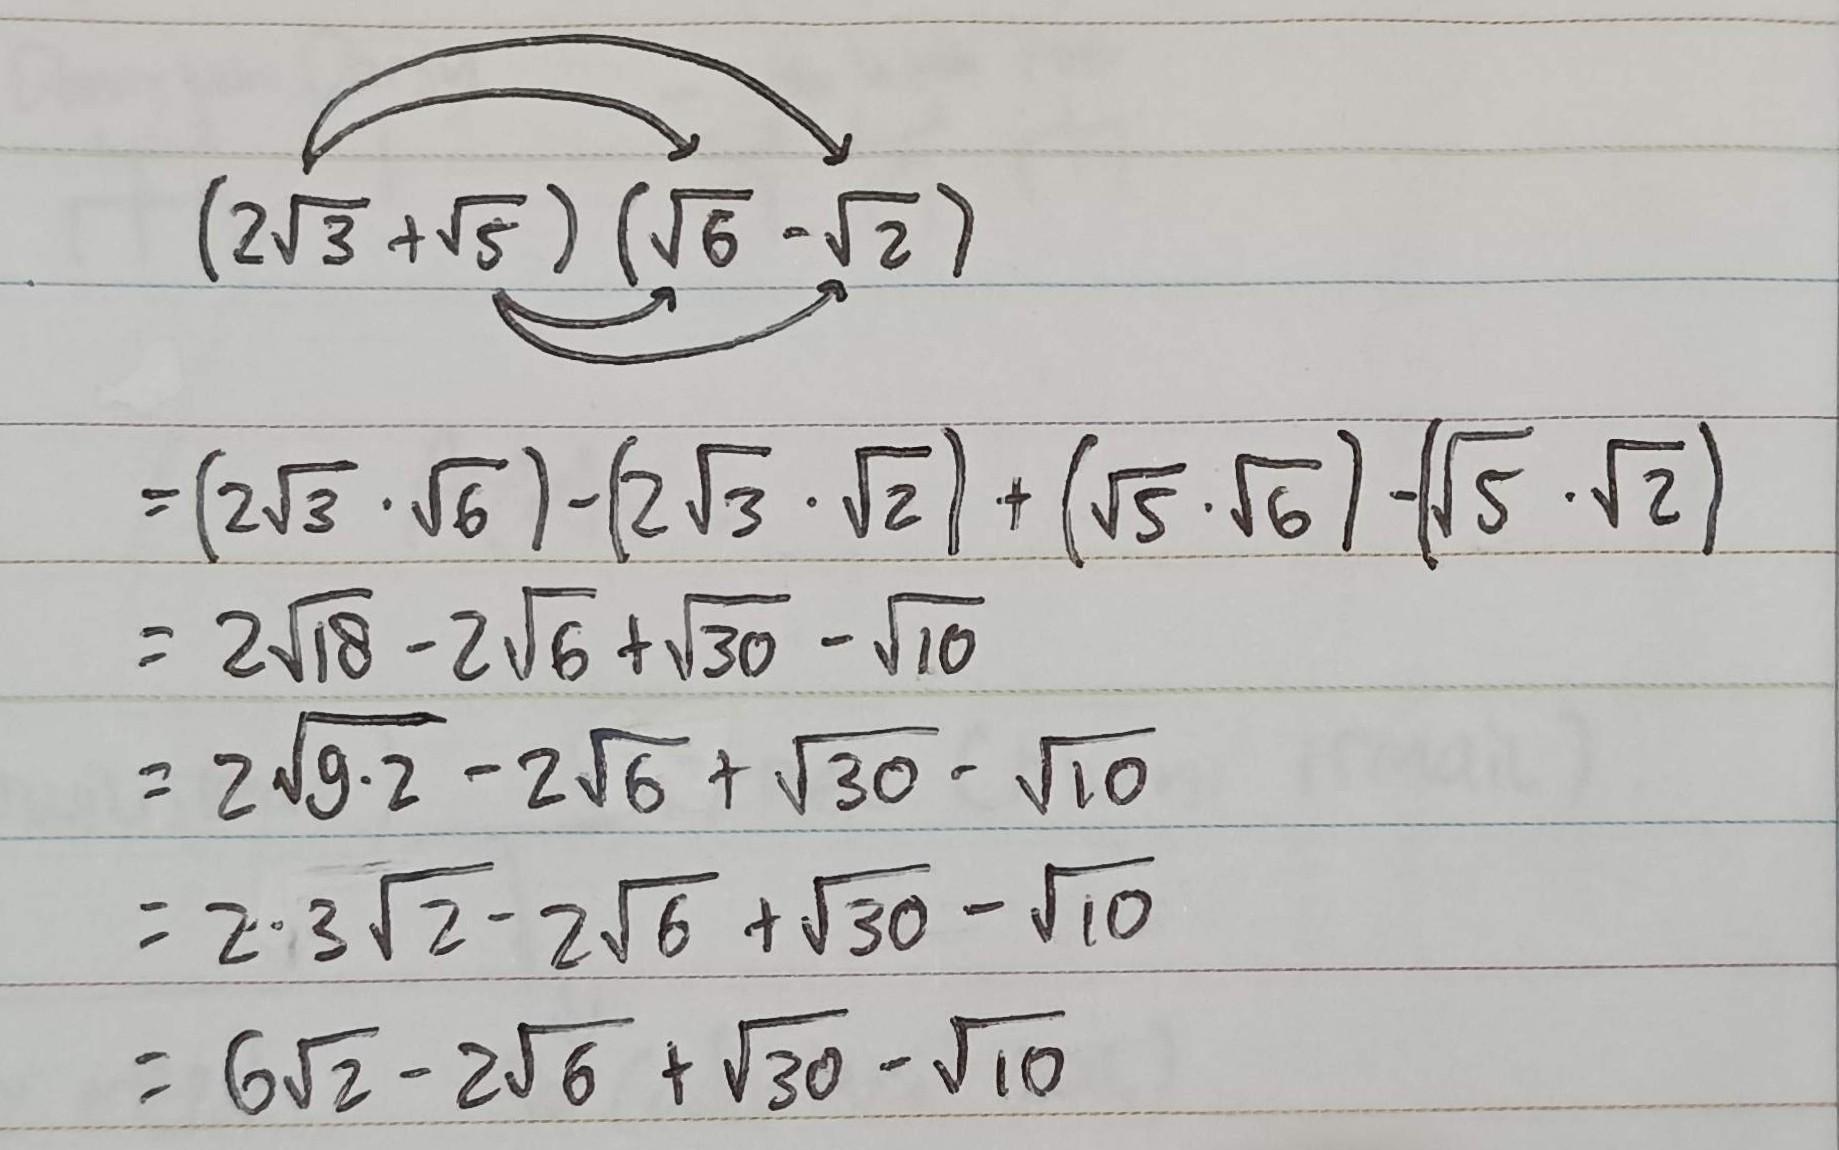 (2√3 + √5) (√6 - √2)
= (2√3 · √6) - (2√3 · √2) + (√5 · √6) - (√5 · √2)
= 2√18 - 2√6 + √30 - √10
= 2√9·2 - 2√6 + √30 - √10
= 2·3√2 - 2√6 + √30 - √10
= 6√2 - 2√6 + √30 - √10